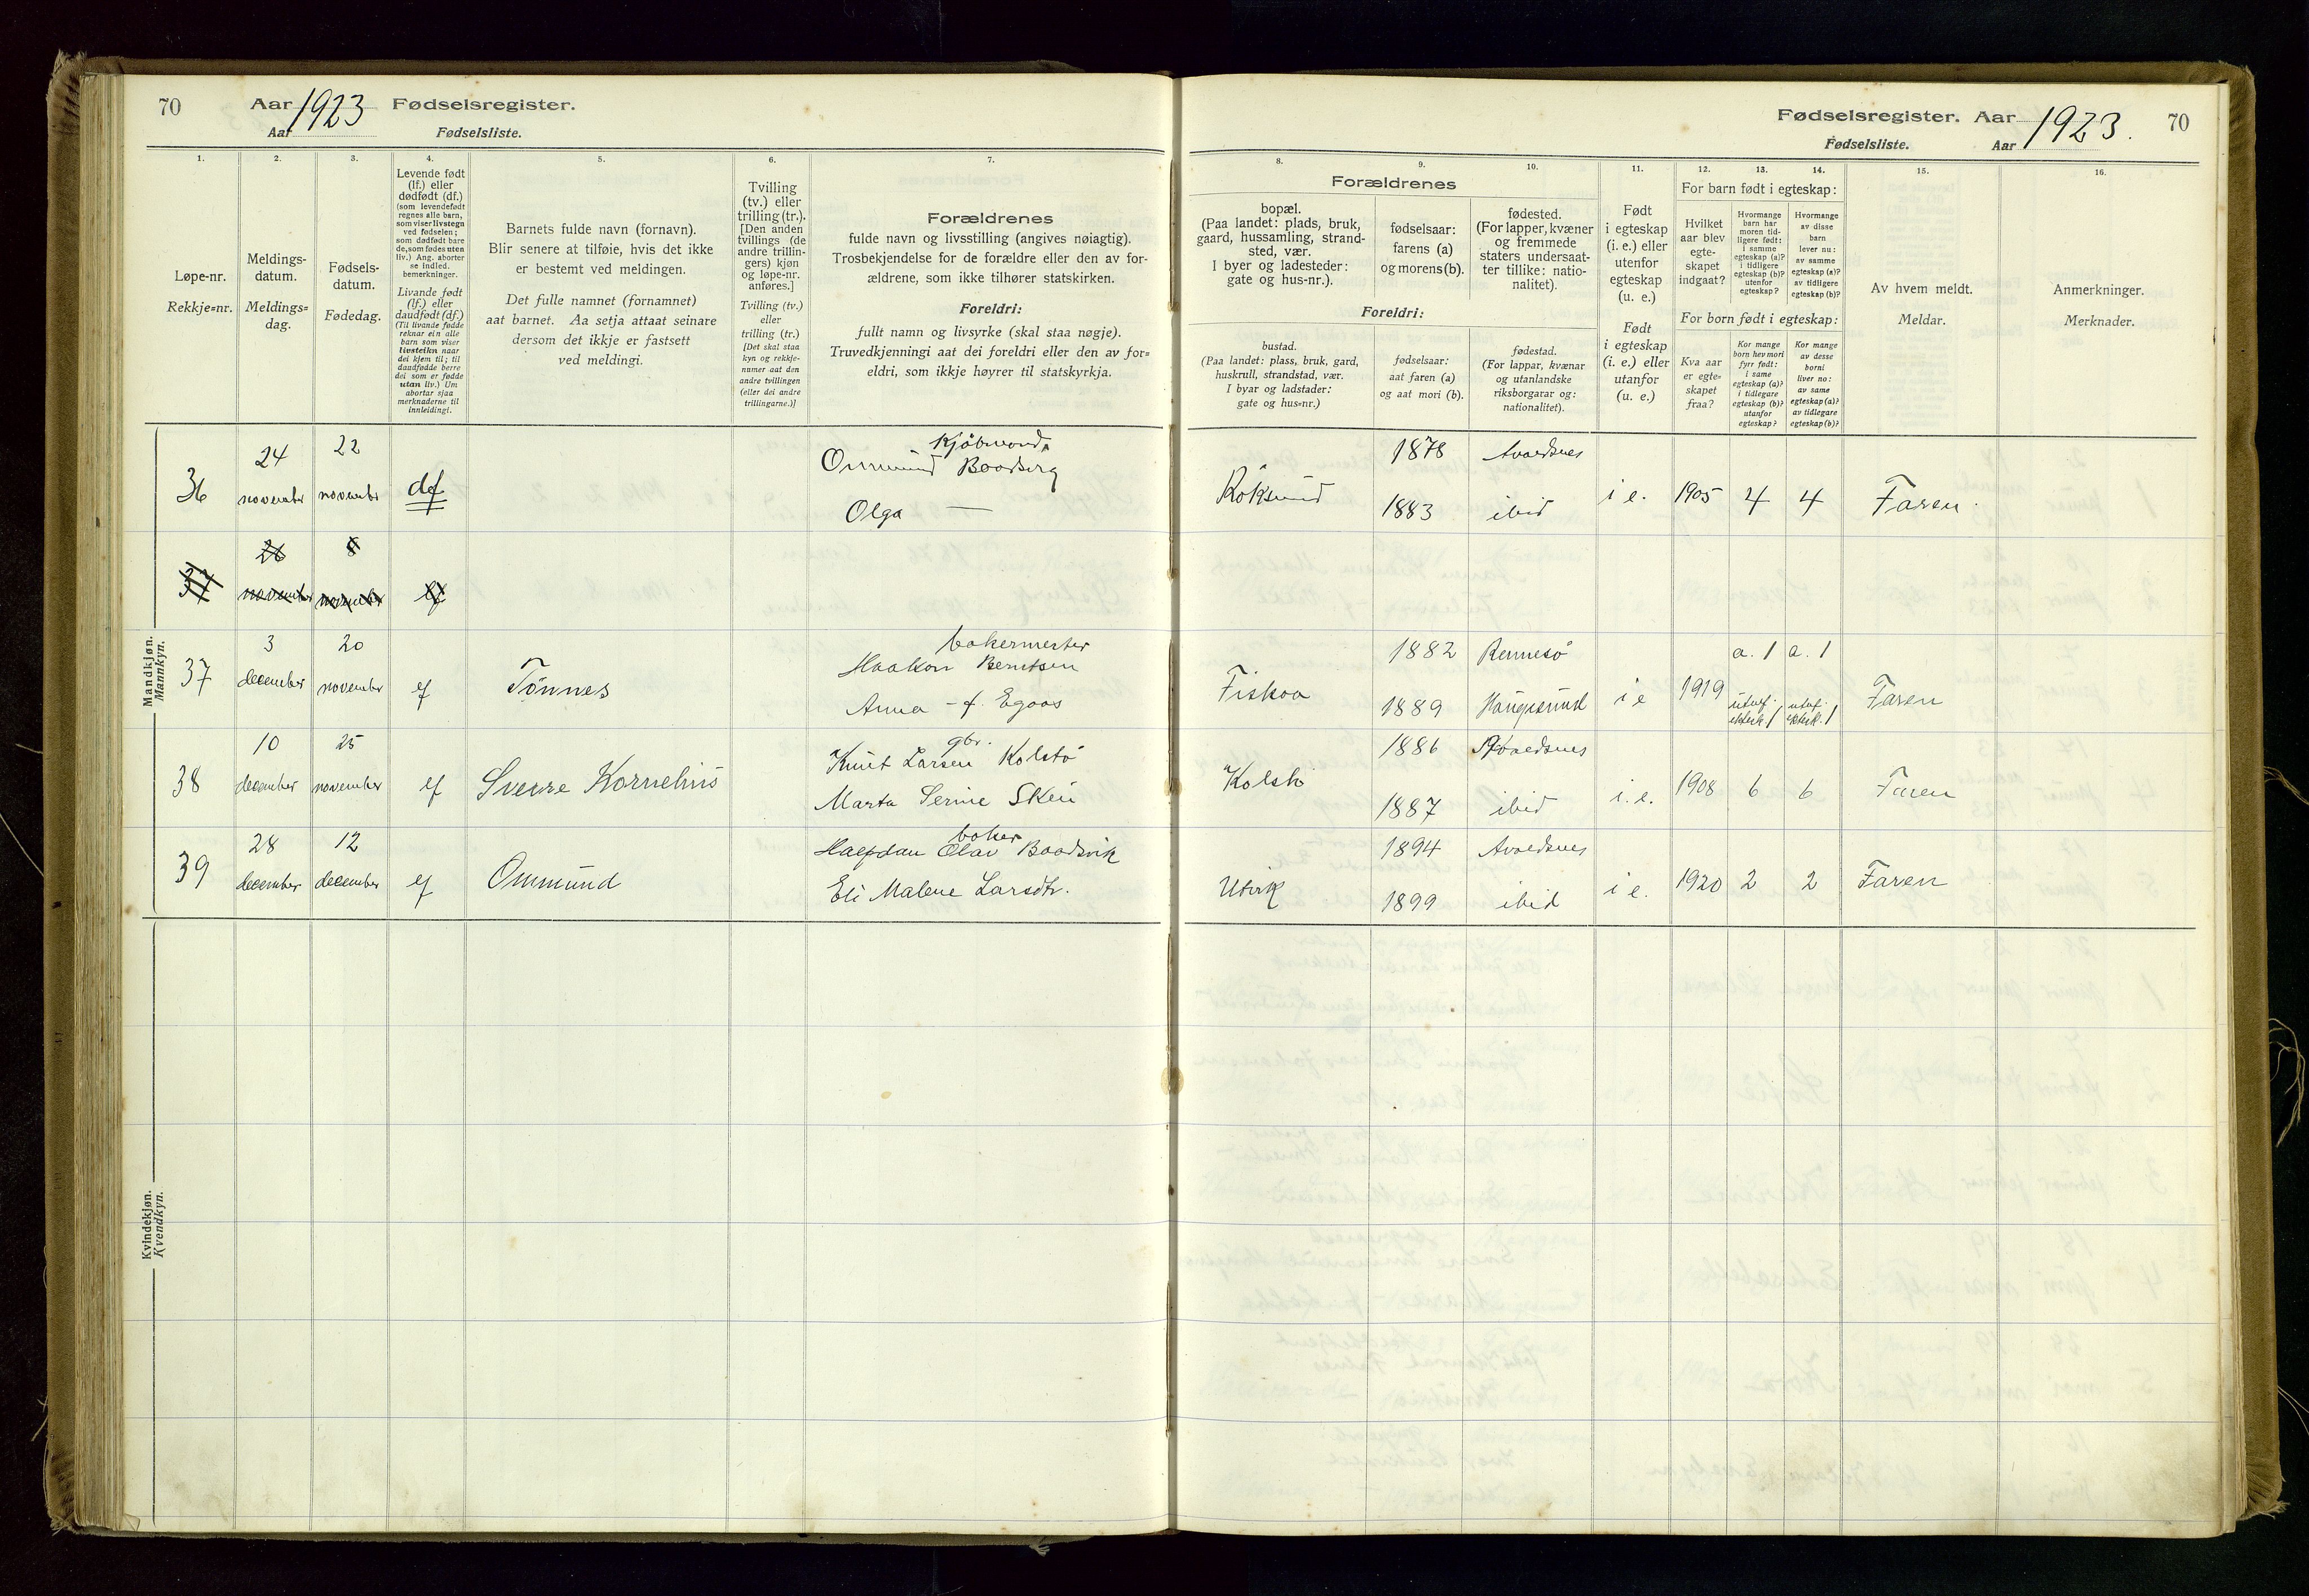 70
Aar 1923 Fødselsregister.
Aar Fødselsliste.
1.
Løpe-nr.
Rekkje=nr.
2.
Meldings-
datum.
Meldings=
dag.
3.
Fødsels-
datum.
Fødedag.
4.
Levende født
(lf.) eller
dødfødt (df.)
(som levendefødt
regnes alle barn,
som viser livstegn
ved fødselen;
som dødfødt bare
de, som fødes uten
liv.) Ang. aborter
se indled.
bemerkninger.
Livande født
(lf.) eller
daudfødt (df.)
(Til livande fødde
reknar ein alle
barn som viser
livsteikn naar
dei kjem til; til
daudfødde berre
dei som er fødde
utan liv.) Um
abortar sjaa
merknaderne til
innleidingi.
5.
Barnets fulde navn (fornavn).
Blir senere at tilføie, hvis det ikke
er bestemt ved meldingen.
Det fulle namnet (fornamnet)
aat barnet. Aa setja attaat seinare
dersom det ikkje er fastsett
ved meldingi.
6.
Tvilling
(tv.) eller
trilling (tr.).
[Den anden
tvillings (de
andre trillin-
gers) kjøn
og løpe-nr.
anføres.]
Tvilling (tv.)
eller
trilling (tr.)
[Det skal staa
kyn og rekkje-
numer aat den
andre tvillingen
(eller dei andre
trillingarne.)]
7.
Forældrenes
fulde navn og livsstilling (angives nøiagtig).
Trosbekjendelse for de forældre eller den av for-
ældrene, som ikke tilhører statskirken.
Foreldri:
fullt namn og livsyrke (skal staa nøgje).
Truvedkjenningi aat dei foreldri eller den av for=
eldri, som ikkje høyrer til statskyrkja.
Mandkjøn.
Mannkyn.
36
24
november
22
november
df
Kjøbmand
Ommund Baadsvig
Olga —
37
26
november
8
november
lf
37
3
december
20
november
lf
Tönnes
bakermester
Haakon Berntsen
Anna - f. Egaas
38
10
december
25
november
lf
Sverre Kornelius
gbr.
Knut Larsen Kolstö
Marta Serine Skeie
39
28
december
12
december
lf
Ommund
baker
Halfdan Olav Baadsvik
Eli Malene Larsdtr.
Kvindekjøn.
Kvendkyn.
Fødselsregister. Aar 1923. 70
Fødselsliste. Aar
8.
Forældrenes
bopæl.
(Paa landet: plads, bruk,
gaard, hussamling, strand-
sted, vær.
I byer og ladesteder:
gate og hus-nr.).
Foreldri:
bustad.
(Paa landet: plass, bruk, gard,
huskrull, strandstad, vær.
I byar og ladstader:
gate og hus=nr.)
9.
fødselsaar:
farens (a)
og morens (b).
fødselsaar:
aat faren (a)
og aat mori (b).
10.
fødested.
(For lapper, kvæner
og fremmede
staters undersaat-
ter tillike: natio-
nalitet).
fødestad.
(For lappar, kvænar
og utanlandske
riksborgarar og:
nationalitet).
11.
Født
i egteskap
(i. e.) eller
utenfor
egteskap
(u. e.)
Født
i egteskap
(i. e.) eller
utanfor
(u. e.)
12. 13. 14.
For barn født i egteskap:
Hvilket
aar blev
egte-
skapet
indgaat?
Hvormange
barn har
moren tid-
ligere født:
i samme
egteskap (a)?
i tidligere
egteskap (b)?
utenfor
egteskap?
Hvormange
av disse
barn
lever nu:
av samme
egteskap (a)?
av tidligere
egteskap (b)?
For born født i egteskap:
Kva aar
er egte-
skapet
fraa?
Kor mange
born hev mori
fyrr født:
i same
egteskap (a)?
i tidlegare
egteskap (b)?
utanfor
egteskap?
Kor mange
av desse
borni
liver no:
av same
egteskap (a)?
av tidlegare
egteskap (b)?
15.
Av hvem meldt.
Meldar.
16.
Anmerkninger.
Merknader.
Röksund
1878
1883
Avaldsnes
ibid
i e.
1905
4
4
Faren.
Fiskaa
1882
1889
Rennesö
Haugesund
i e
1919
a. 1
utaf.
ektesk. 1
a. 1
utaf.
ektesk. 1
Faren
Kolstö
1886
1887
Avaldsnes
ibid
i. e.
1908
6
6
Faren
Utvik
1894
1899
Avaldsnes
ibid
i e.
1920
2
2
Faren